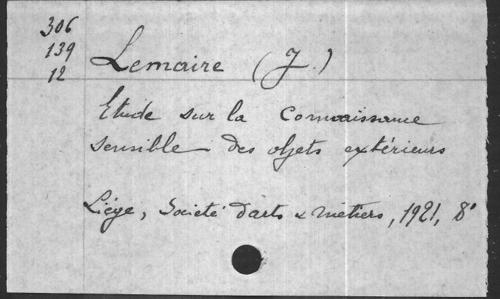 306
139
12
Lemaire (J.)
Etude sur la Connaissance
sensible des objets extérieurs
Liége, Société d'arts & métiers, 1921, 8°